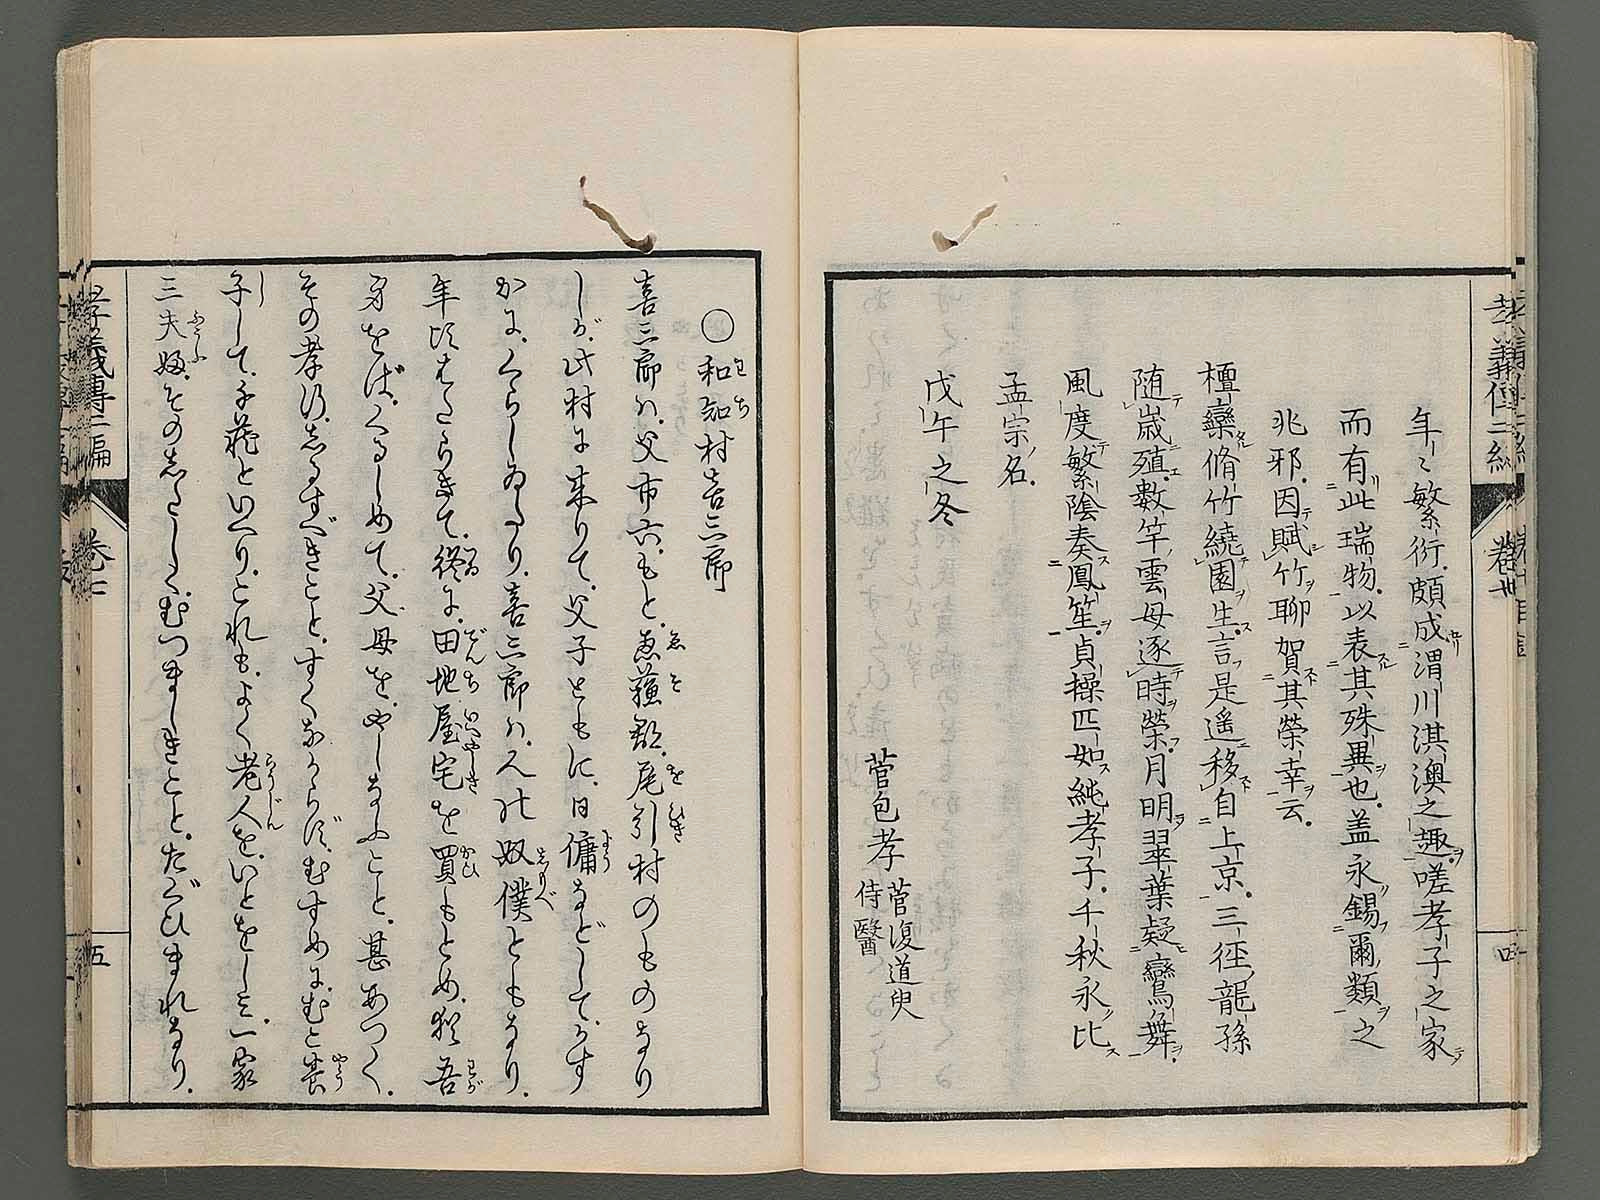 年々繁衍頗成渭川淇澳之趣嗟孝子之家
而有此瑞物以表其殊異也蓋永錫爾類之
兆邪因賦竹聊賀其榮幸云
檀欒脩竹繞園生言是遥移自上京三徑龍孫
随歳殖數竿雲母逐時榮月明翠葉疑鸞舞
風度繁陰奏鳳笙貞操匹如純孝子千秋永比
孟宗名
戊午之冬
菅包孝 菅復道臾
侍醫
○和知村喜三郎
喜三郎ハ父市六もと恵蘓郡尾引村のものなり
しが此村に来りて父子ともに日傭などしてかす
かにくらしゐたり喜三郎ハ人の奴僕ともなり
年比はたらきて終に田地屋宅を買もとめ猶吾
身をばくるしめて父母をやしなふこと甚あつく
その孝行しるすべきことすくなからずむすめにむと養
子して千蔵といへりこれもよく老人をいとをしミ一家
三夫婦そのしたしくむつましきことたぐひまれなり
孝義傳二編
卷七
五